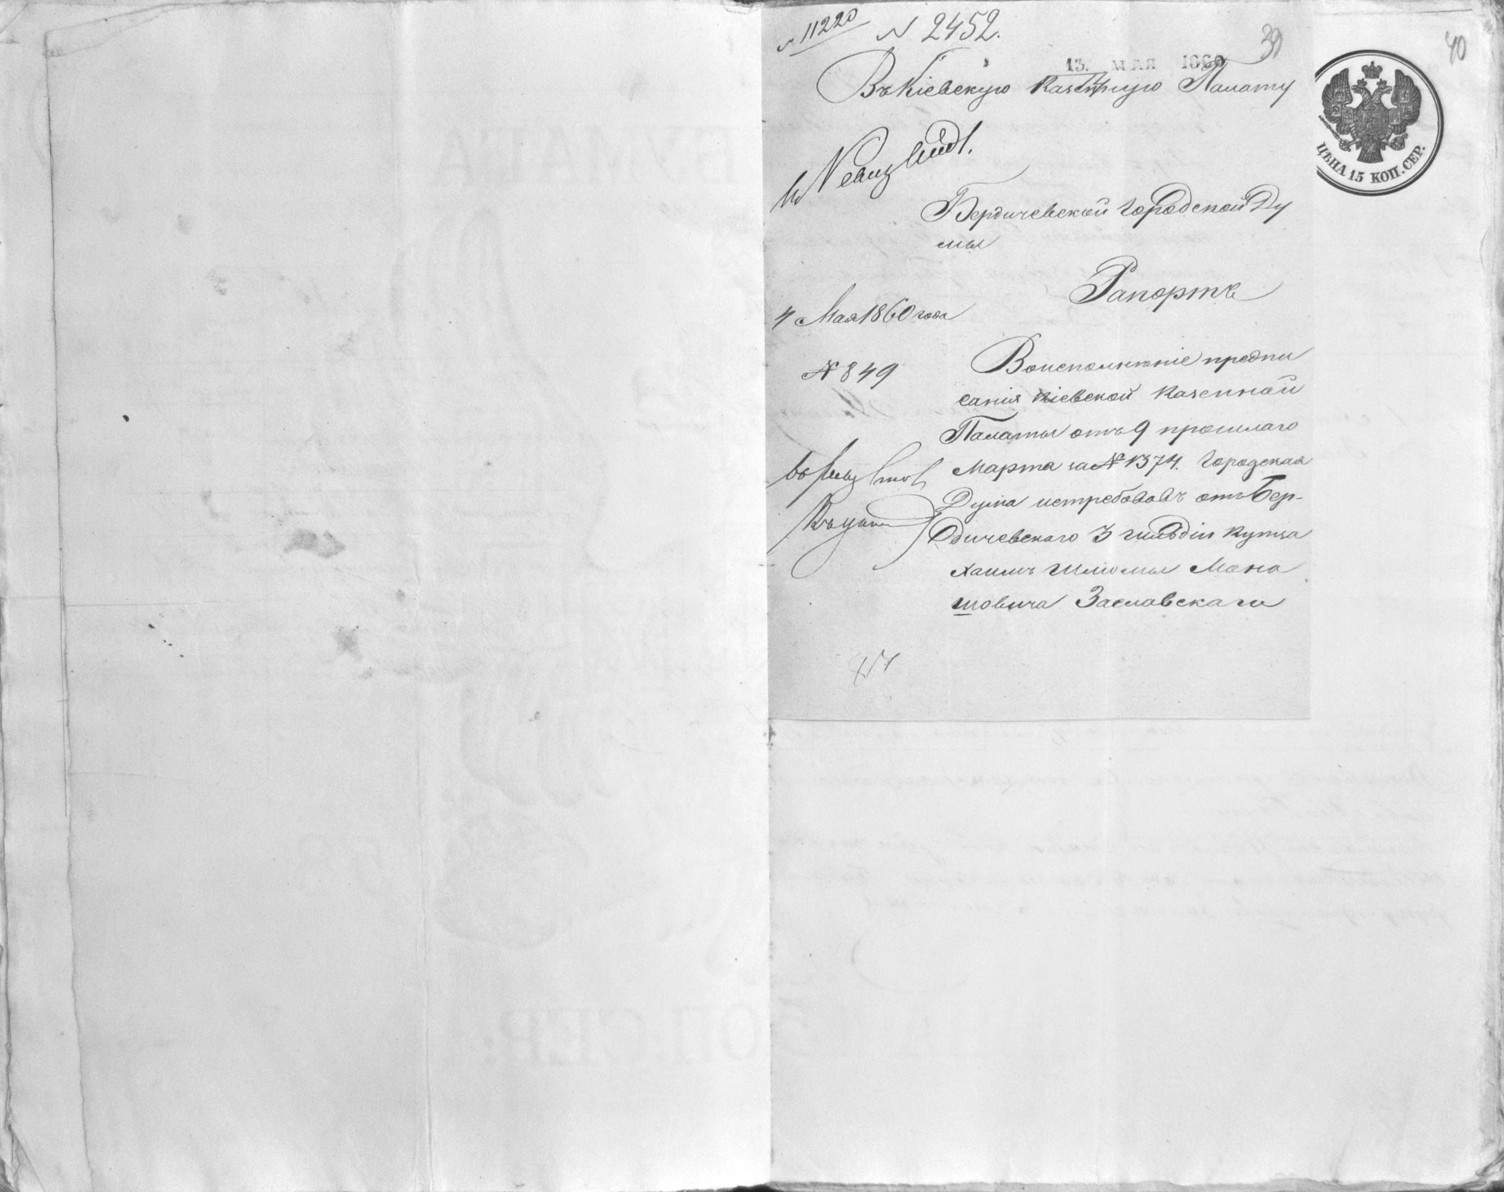 № 11220
№ 2452.
39
40
13. МАЯ 1860
Въ Кіевскую Казенную Палату
ЦѢНА 15 КОП. СЕР.
Бердичевской Городской Ду
мы
Рапортъ
4 Мая 1860 года
№ 849
Воисполненіе предпи
санія Кіевской Казенной
Палаты отъ 9 прошлаго
Марта за № 1374. Городская
Дума истребовавъ отъ Бер-
дичевскаго 3 гильдіи купца
Хаимъ Шлиомы Мана
шовича Заславскаго